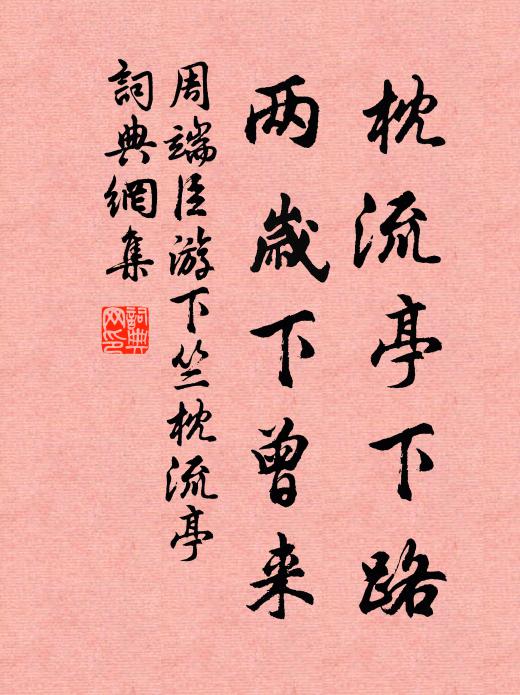 枕流亭下路
两歲下曾来
周端臣游下竺枕流亭
詞典網集
詞典網印